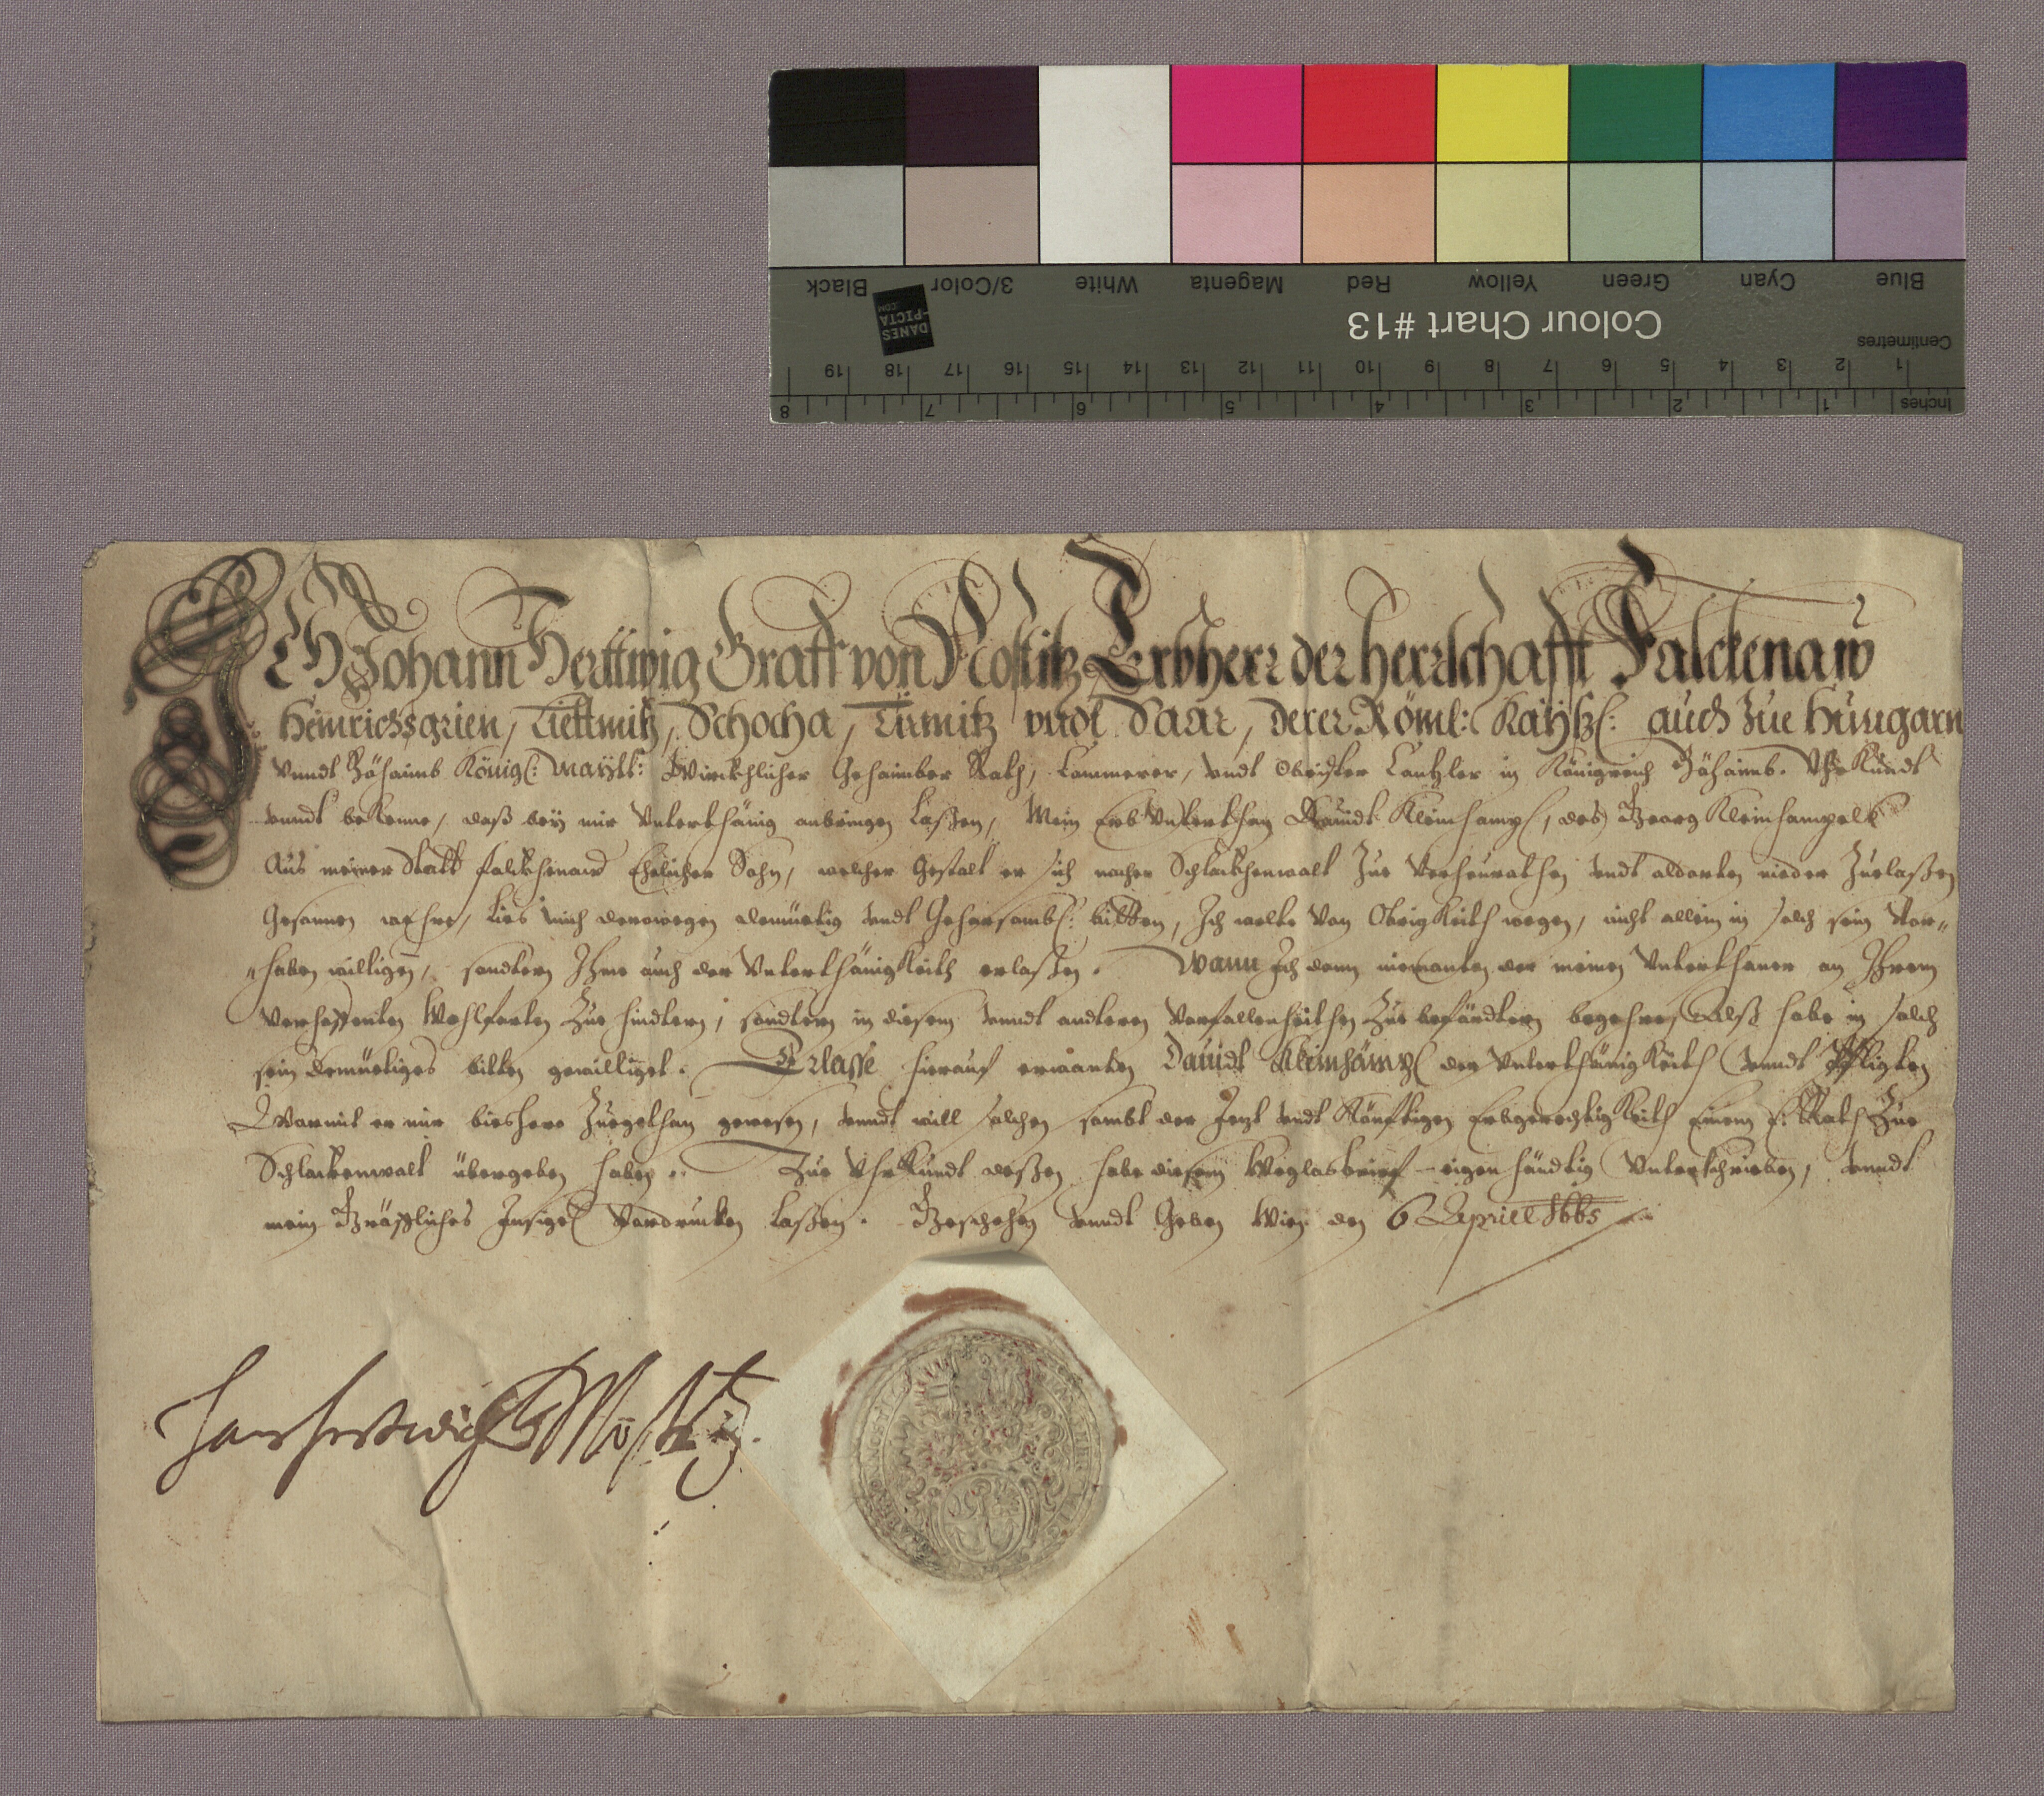 Black 3/Color White Magenta Red Yellow Green Cyan Blue
DANES
-PICTA
.COM
Colour Chart #13
Centimetres
19 18 17 16 15 14 13 12 11 10 9 8 7 6 5 4 3 2 1
8 7 6 5 4 3 2 1 Inches
ICH Johann Herttwig Graff von Nostitz Erbherr der herrschafft Falckenaw
Heinrichsgrien, Tiettmitz, Schocha, Türmitz vndt Saar, derer Röml: Kaÿßl: auch zue Hungarn
vnndt Böhaimb Königl: Maÿtt: Würckhlicher Gehaimber Rath, Cammerer, vndt Obrister Cantzler in Königreich Böhaimb. Vhrkundt
vnndt bekenne, daß beÿ mir Vnterthänig anbringen laßen, Mein Erb Vnterthan Dauidt Kleinhampl, des Georg Kleinhampels
Aus meiner Statt Falckhenaw Ehelicher Sohn, welcher Gestalt er sich nacher Schlackhenwalt Zue Verheurathen vndt aldorten nieder Zuelaßen
Gesonnen wehre, Lies mich derowegen demüetig vndt Gehorsambl: bitten, Ich wolte von Obrigkeith wegen, nicht allein in solch sein Vor-
haben willigen, sondtern Ihme auch der Vnterthänigkeith erlaßen. Wann Ich dann niemanten der meinen Vnterthaner an Ihrem
Verhoffenten Wohlfarten Zue hindtern, sondtern in diesem vnndt anderen Vorfallenheithen Zue befördtern begehre, Alß habe in solch
sein demüetiges bitten gewilliget. Erlasse hierauf ernanten Dauidt Kleinhämpl der Vnterthänigkeith vnndt Pflichten
Warmit er mir bieshero Zuegethan gewesen, vnndt will solchen sambt der Jezt vndt Künftigen Erbgerechtigkeith Einem E: Rath Zue
Schlackenwalt übergeben haben. Zue Vhrkundt deßen habe diesem Weglasbrief eigenhändtig Vnterschrieben, vnndt
mein Gräffliches Insigel Vordrucken laßen. Geschehen vnndt Geben Wien den 6 Aprill 1665
Hans Hertwich G V Nostitz